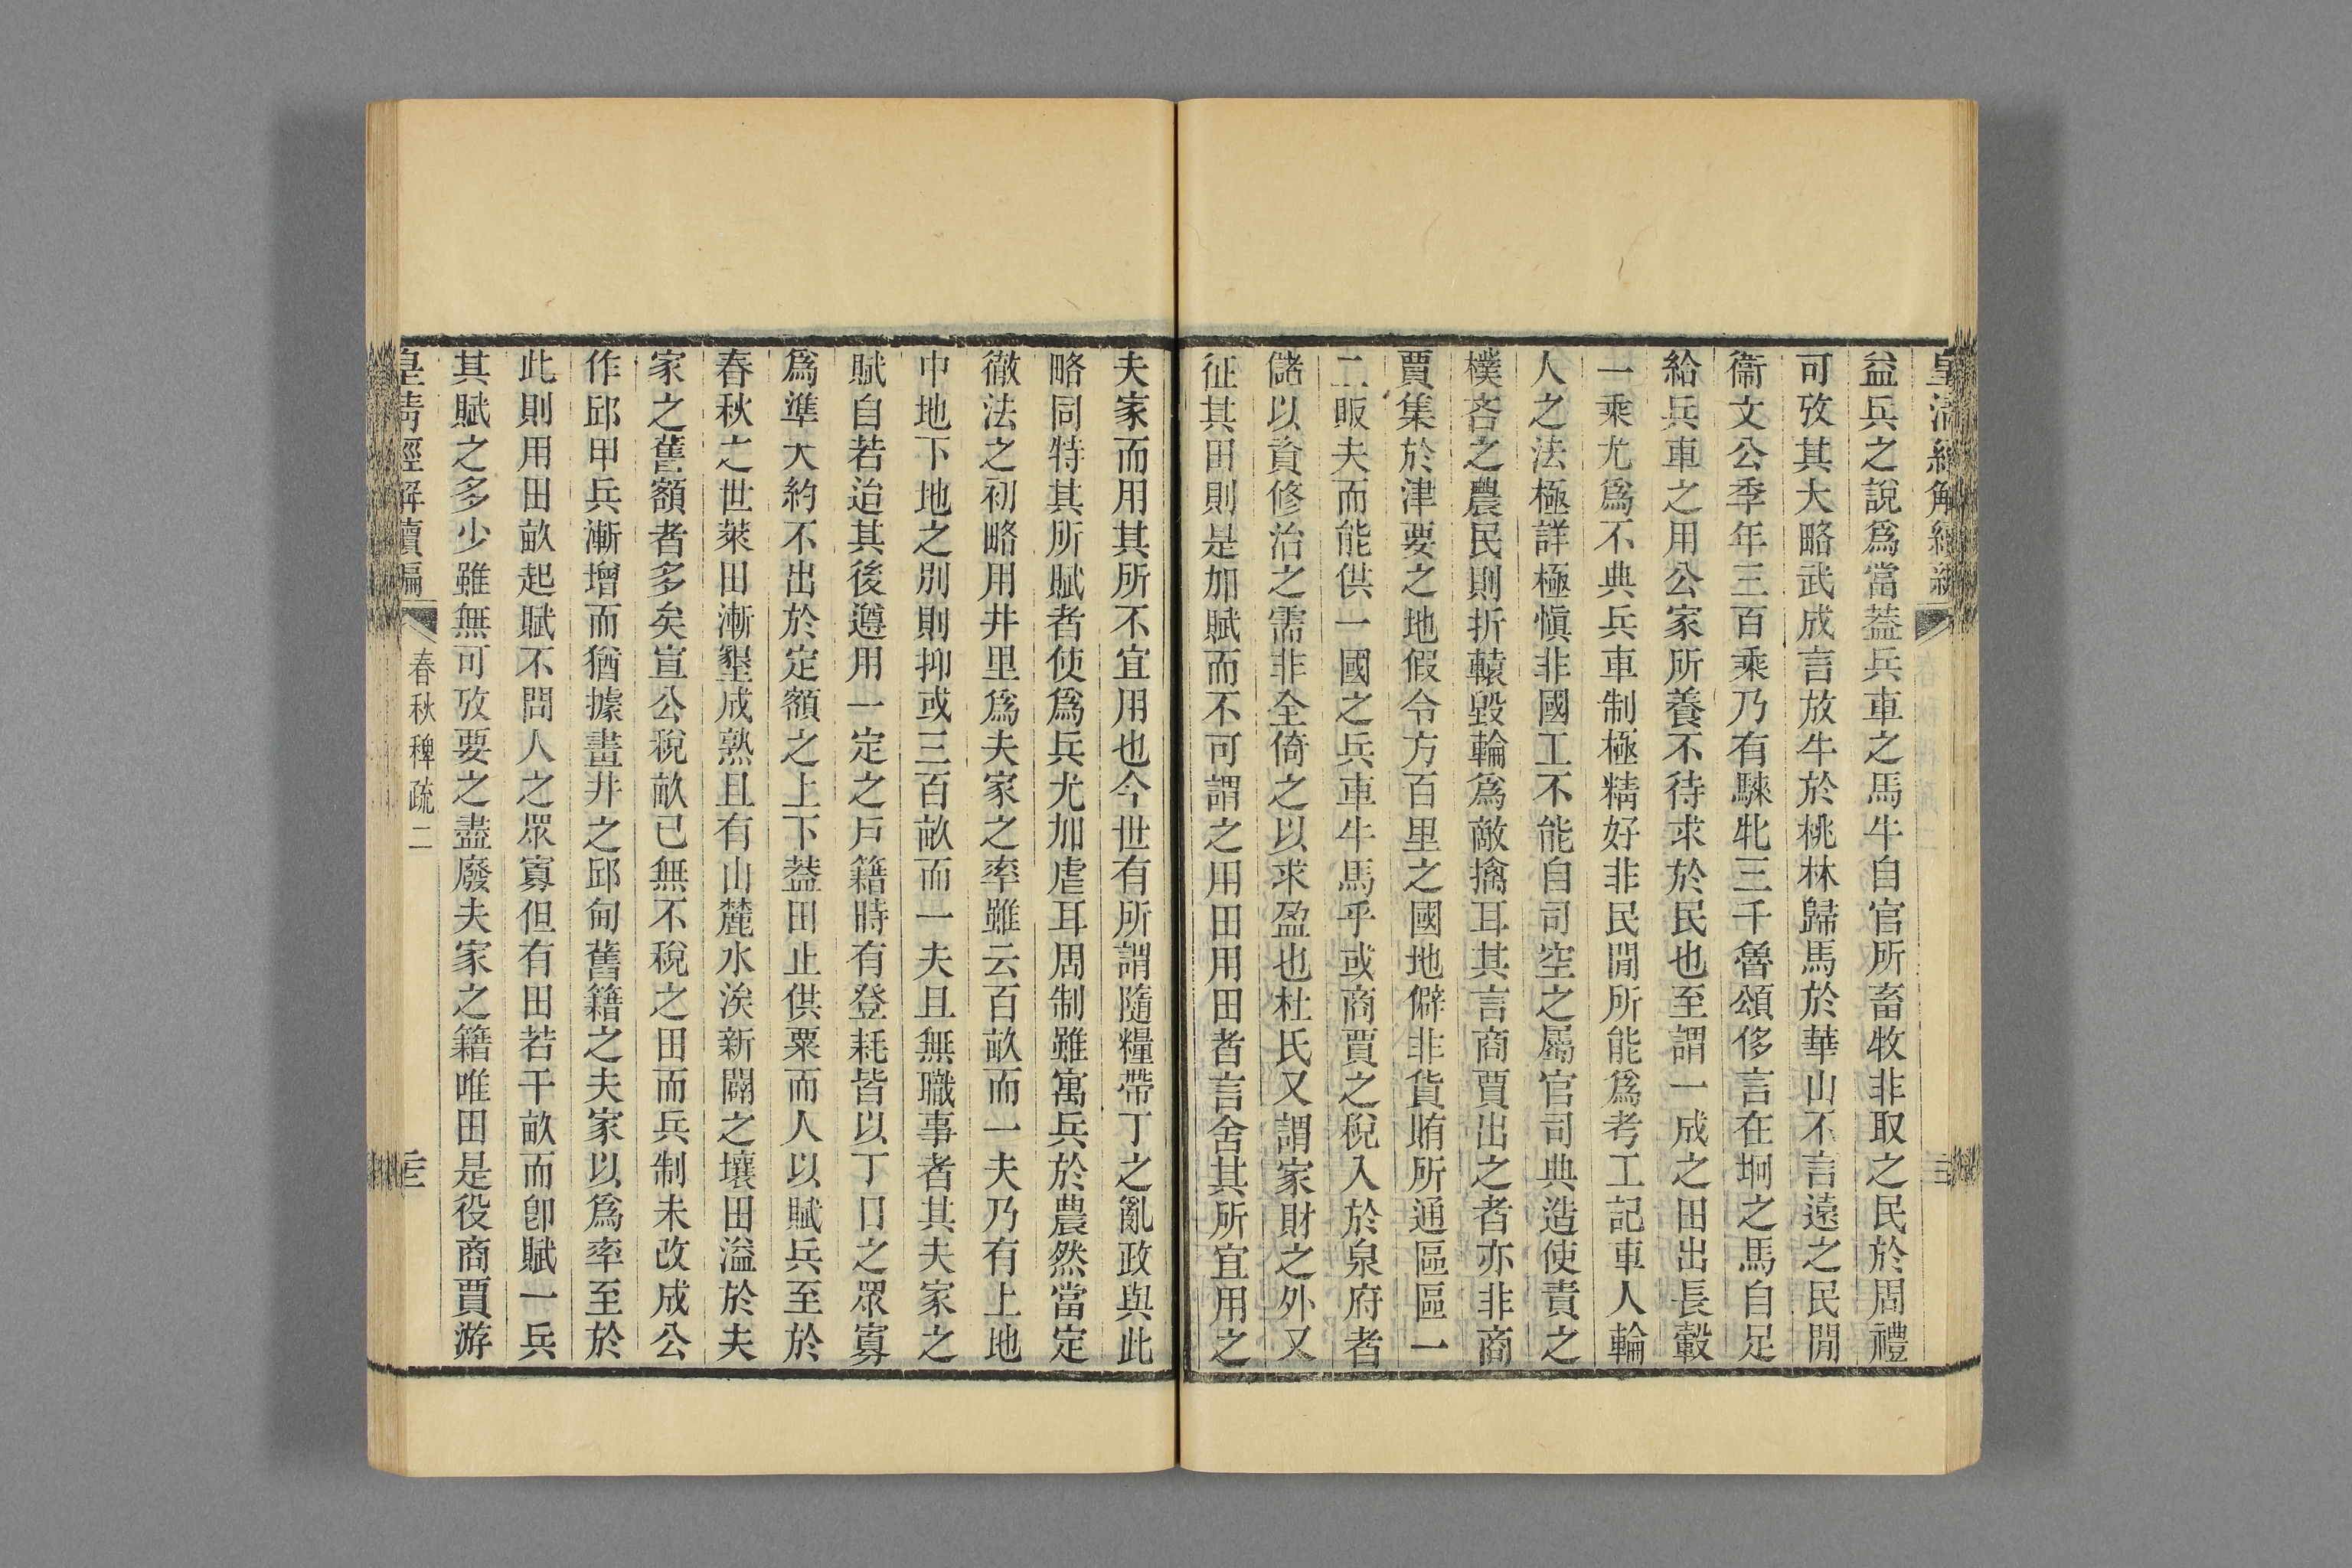 皇清經解續編
益兵之說爲當葢兵車之馬牛自官所畜牧非取之民於周禮
可攷其大略武成言放牛於桃林歸馬於華山不言遠之民閒
衞文公季年三百乘乃有騋牝三千魯頌侈言在坰之馬自足
給兵車之用公家所養不待求於民也至謂一成之田出長轂
一乘尤爲不典兵車制極精好非民閒所能爲考工記車人輪
人之法極詳極愼非國工不能自司空之屬官司典造使責之
樸吝之農民則折轅毀輪爲敵擒耳其言商賈出之者亦非商
賈集於津要之地假令方百里之國地僻非貨賄所通區區一
二販夫而能供一國之兵車牛馬乎或商賈之稅入於泉府者
儲以資修治之需非全倚之以求盈也杜氏又謂家財之外又
征其田則是加賦而不可謂之用田用田者言舍其所宜用之
夫家而用其所不宜用也今世有所謂隨糧帶丁之亂政與此
略同特其所賦者使爲兵尤加虐耳周制雖寓兵於農然當定
徹法之初略用井里爲夫家之率雖云百畝而一夫乃有上地
中地下地之別則抑或三百畝而一夫且無職事者其夫家之
賦自若迨其後遵用一定之戶籍時有登耗皆以丁口之眾寡
爲準大約不出於定額之上下葢田止供粟而人以賦兵至於
春秋之世萊田漸墾成熟且有山麓水涘新闢之壤田溢於夫
家之舊額者多矣宣公稅畝已無不稅之田而兵制未改成公
作邱甲兵漸增而猶據畫井之邱甸舊籍之夫家以爲率至於
此則用田畝起賦不問人之眾寡但有田若干畝而卽賦一兵
其賦之多少雖無可攷要之盡廢夫家之籍唯田是役商賈游
皇清經解續編
春秋稗疏二